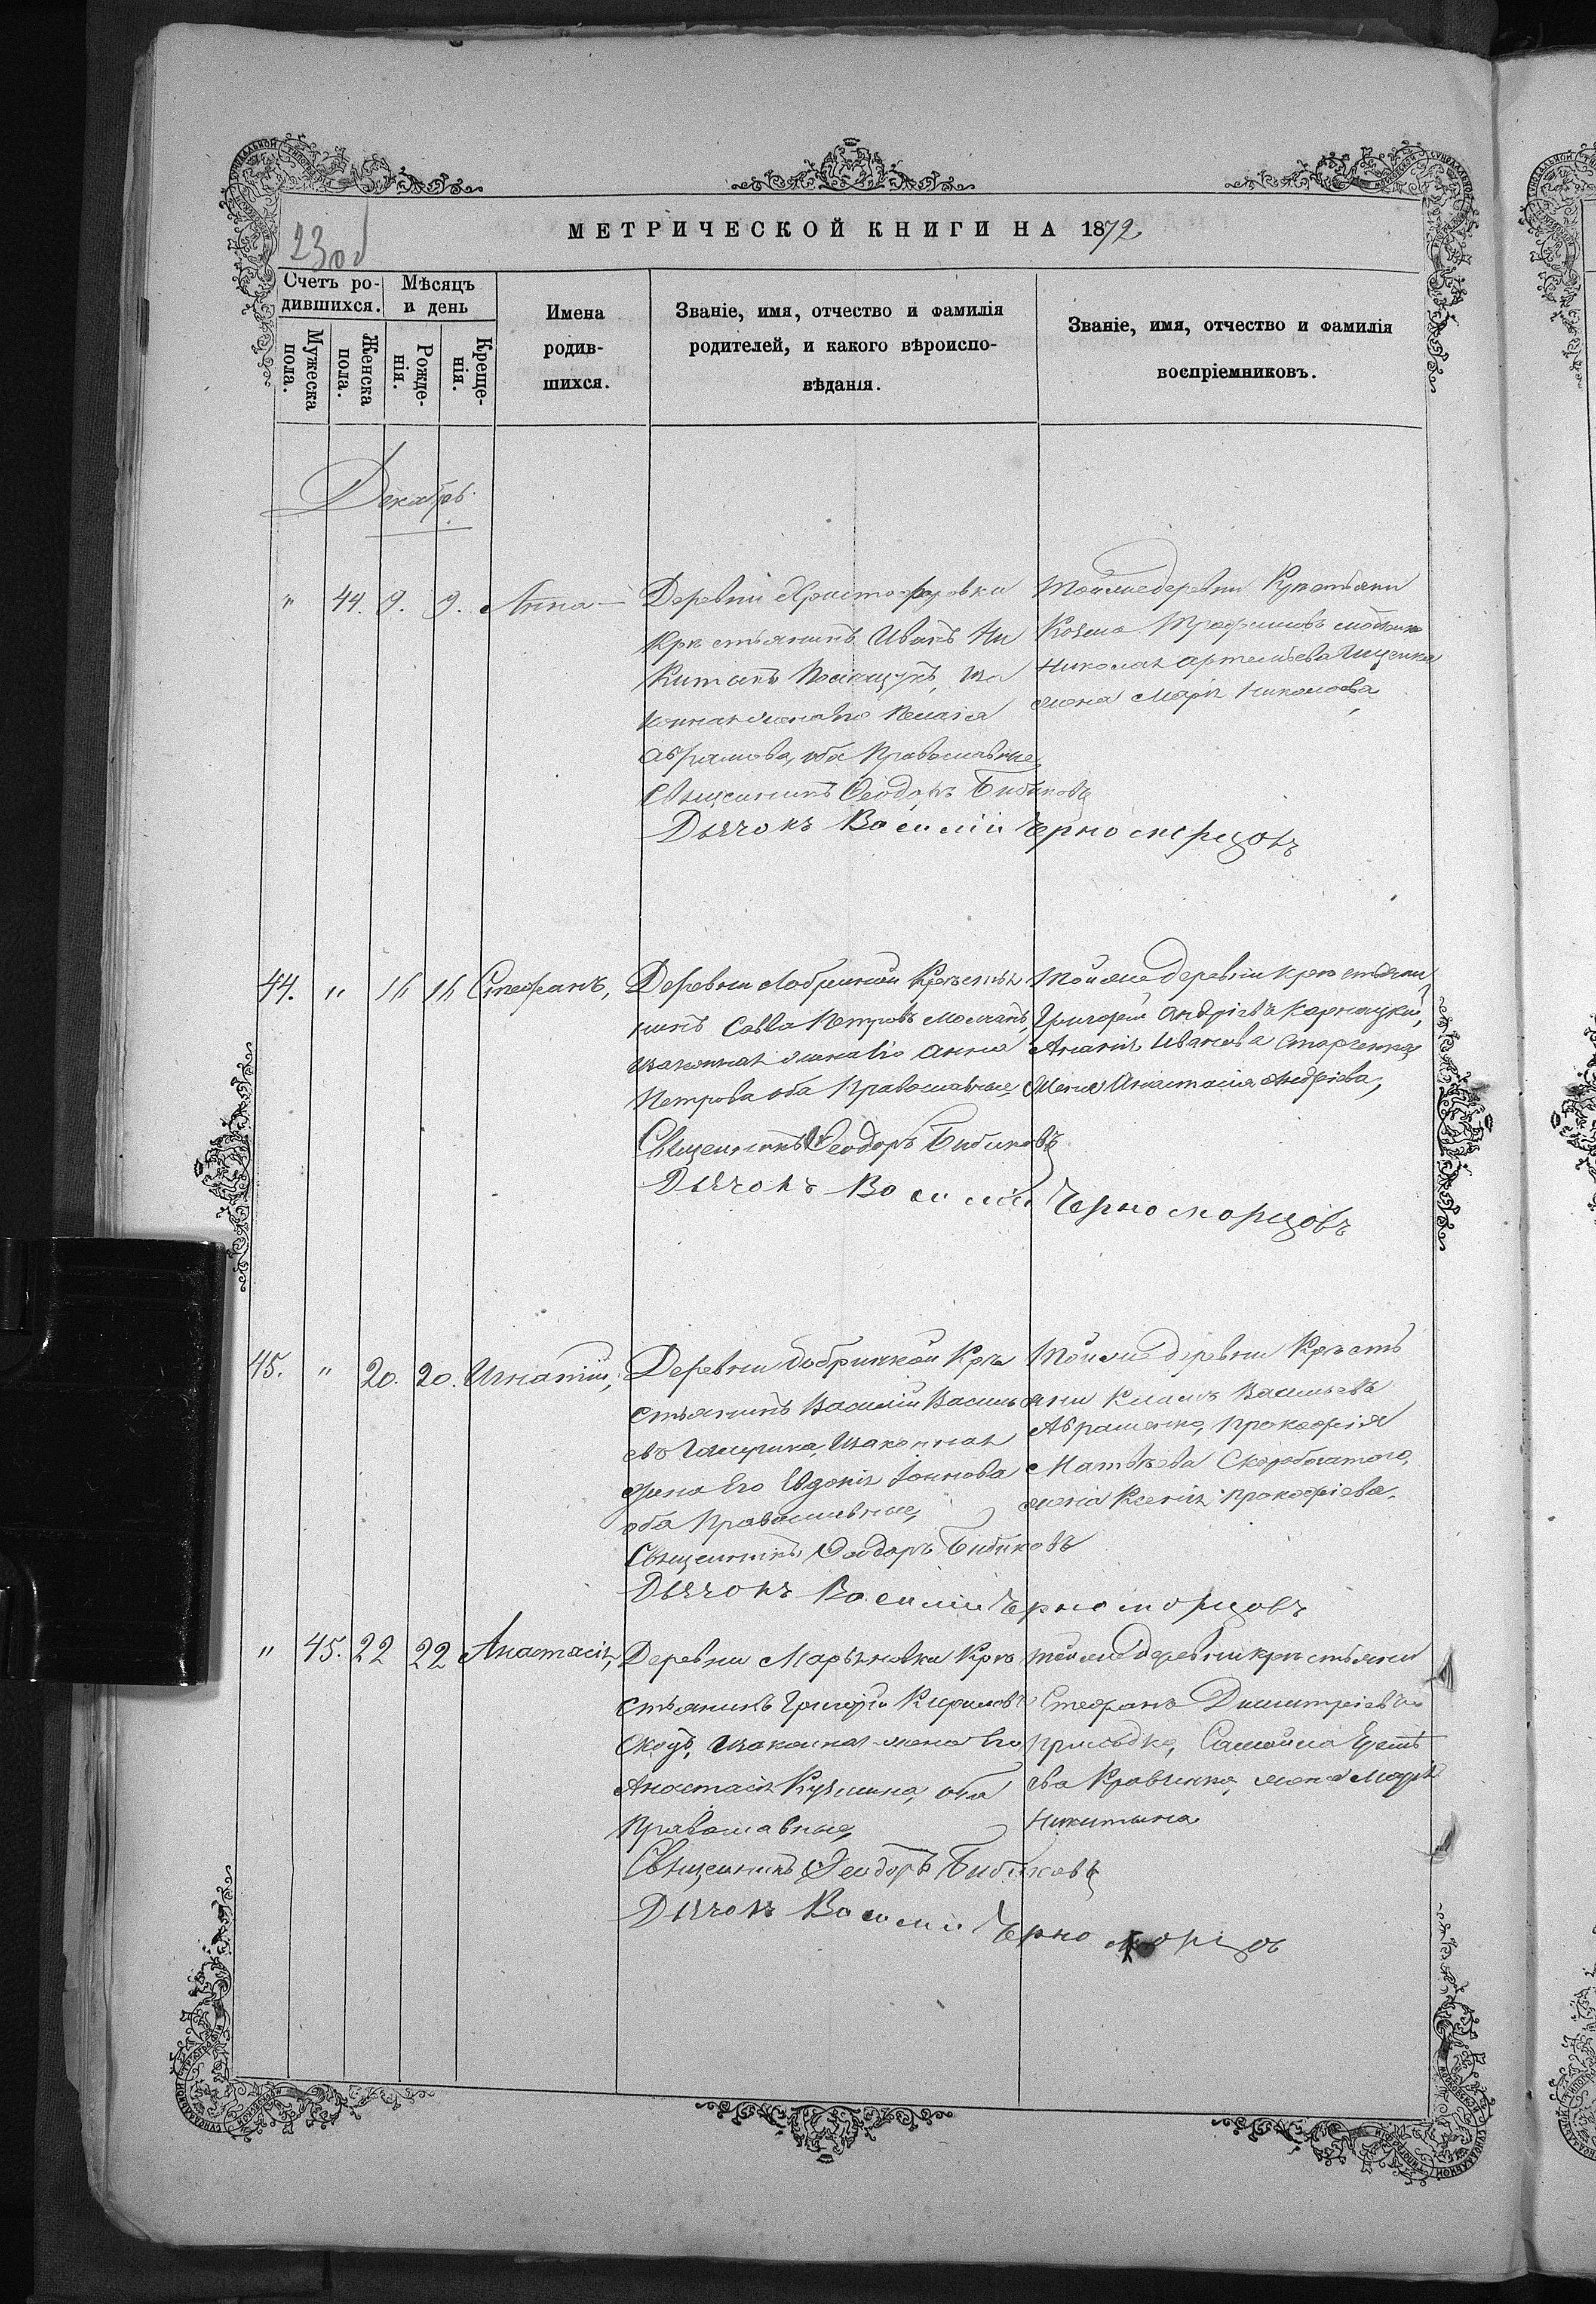 МЕТРИЧЕСКОЙ КНИГИ НА 1872
23 об
Счетъ родившихся.
Мужеска пола.
Женска пола.
Мѣсяцъ и день
Рожденія.
Крещенія.
Имена
родив-
шихся.
Званіе, имя, отчество и фамилія
родителей, и какого вѣроиспо-
вѣданія.
Званіе, имя, отчество и фамилія
воспріемниковъ.
Декабрь
" 44. 9. 9. Анна
Деревни Христофоровки
Крестьянинъ Иванъ Ни
китинъ за
конная жена его
Абрамова, оба Православные,
Священникъ Ѳеодоръ Бибиковъ
Дьячокъ Василій Черноморцовъ
Тойже деревни Крестьяни
Козьма Трофимовъ
Николая Артемьева
жена Марія Николаева,
44. " 16 16 Стефанъ,
Деревни Добринкой Крестья
нинъ Савва Петровъ
Законная жена Его Анна
Петрова оба Православные,
Священникъ Ѳеодоръ Бибиковъ
Дьячокъ Василій Черноморцовъ
Тойже деревни крестьяни,
Григорій Андріевъ Карнацкій,
Иванова
жена Анастасія Андріева,
45. " 20. 20. Игнатій,
Деревни Добринкой Кре
стьянинъ Василій Василь
евъ Законная
жена Его Евдокія Іоаннова
оба Православные,
Священникъ Ѳеодоръ Бибиковъ
Дьячокъ Василій Черноморцовъ
Тойже деревни Кресть
яни Климъ Васильевъ
Абраменко, Прокофія
Матвѣева Скоробогатого,
жена Ксенія Прокофіева.
" 45. 22 22 Анастасія,
Деревни Марьяновки Кре
стьянинъ Григорій Кириловъ
Законная жена Его
Анастасія Кузмина, оба
Православные,
Священникъ Ѳеодоръ Бибиковъ
Дьячокъ Василій Черноморцовъ
Тойже Деревни крестьяни
Стефанъ Димитріевъ
Приходько, Самойла
ва Кравченко, жена Марія
Никитина